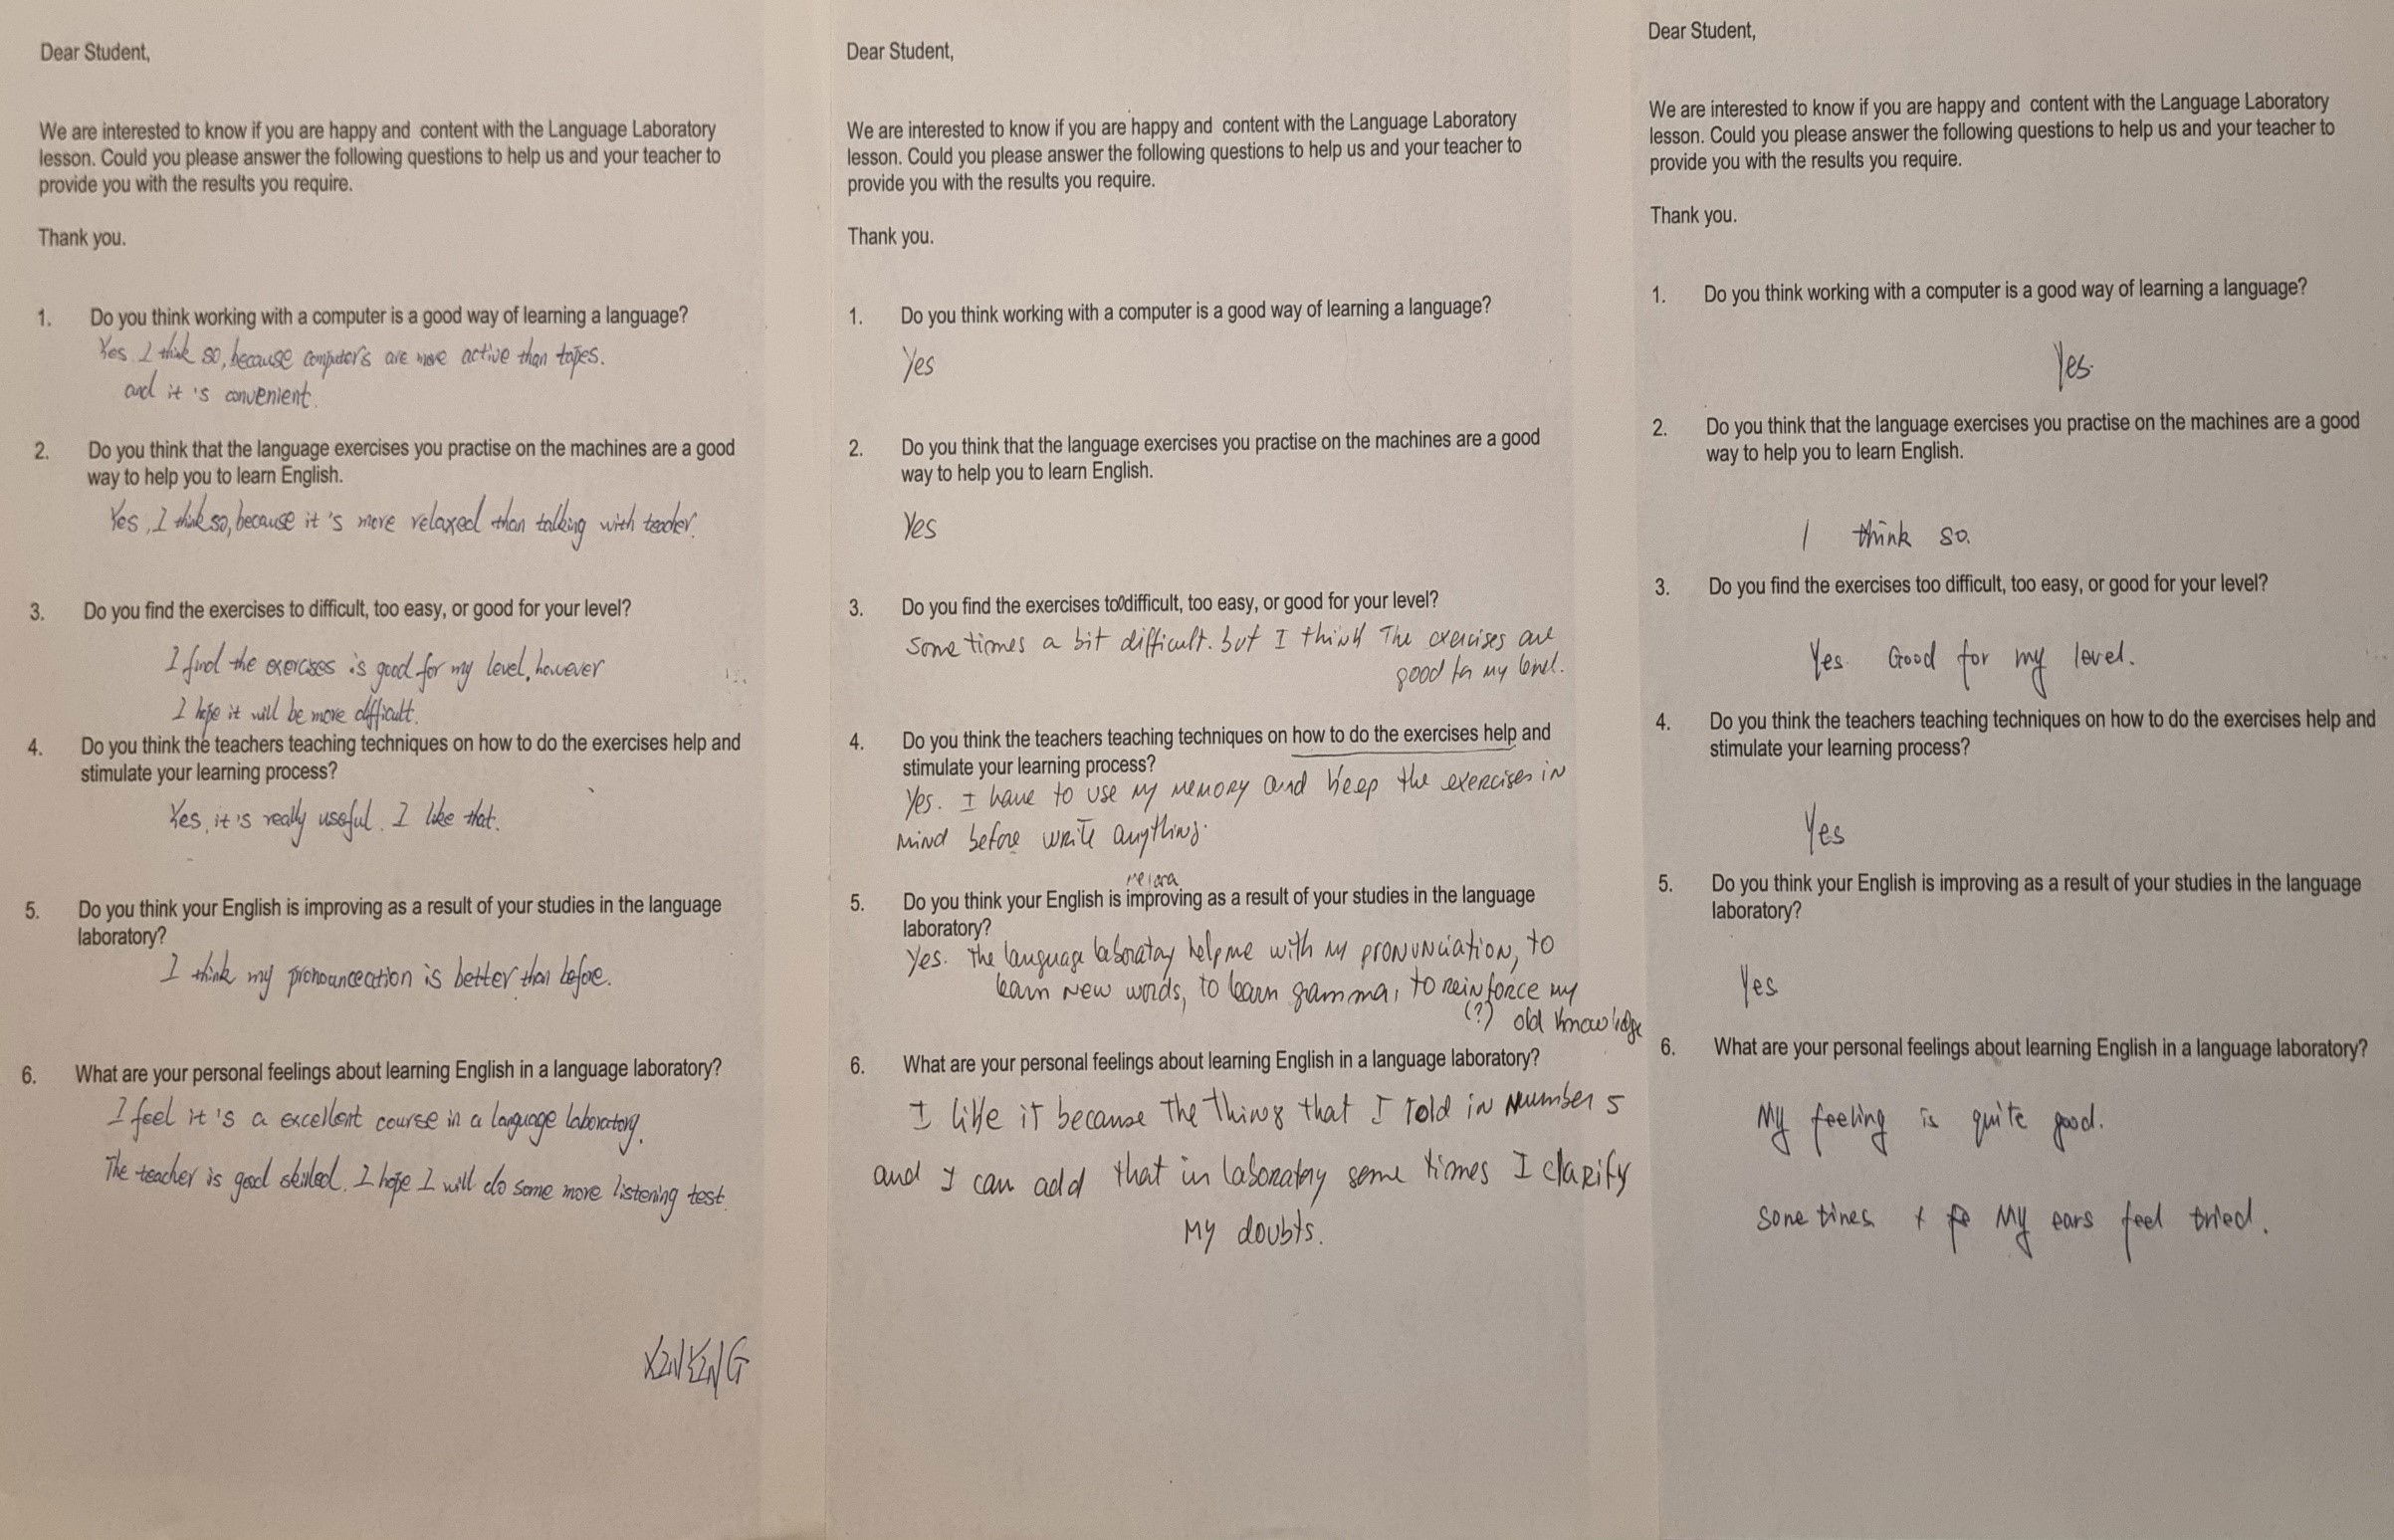 Dear Student,
We are interested to know if you are happy and content with the Language Laboratory
lesson. Could you please answer the following questions to help us and your teacher to
provide you with the results you require.
Thank you.
1. Do you think working with a computer is a good way of learning a language?
Yes. I think so, because computer's are more active than tapes.
and it 's convenient.
2. Do you think that the language exercises you practise on the machines are a good
way to help you to learn English.
Yes, I think so, because it 's more relaxed than talking with teacher.
3. Do you find the exercises to difficult, too easy, or good for your level?
I find the exercises is good for my level, however
I hope it will be more difficult.
4. Do you think the teachers teaching techniques on how to do the exercises help and
stimulate your learning process?
Yes, it 's really useful. I like that.
5. Do you think your English is improving as a result of your studies in the language
laboratory?
I think my pronounceation is better than before.
6. What are your personal feelings about learning English in a language laboratory?
I feel it 's a excellent course in a language laboratory.
The teacher is good skilled. I hope I will do some more listening test.
Dear Student,
We are interested to know if you are happy and content with the Language Laboratory
lesson. Could you please answer the following questions to help us and your teacher to
provide you with the results you require.
Thank you.
1. Do you think working with a computer is a good way of learning a language?
Yes
2. Do you think that the language exercises you practise on the machines are a good
way to help you to learn English.
Yes
3. Do you find the exercises too difficult, too easy, or good for your level?
Some times a bit difficult. but I think The exercises are
good for my level.
4. Do you think the teachers teaching techniques on how to do the exercises help and
stimulate your learning process?
Yes. I have to use my memory and keep the exercises in
mind before write anything.
5. Do you think your English is improving as a result of your studies in the language
laboratory?
Yes. The language laboratory help me with my pronunciation, to
learn new words, to learn grammar, to reinforce my
(?) old knowledge
6. What are your personal feelings about learning English in a language laboratory?
I like it because The things that I told in Number 5
and I can add that in laboratory some times I clarify
My doubts.
Dear Student,
We are interested to know if you are happy and content with the Language Laboratory
lesson. Could you please answer the following questions to help us and your teacher to
provide you with the results you require.
Thank you.
1. Do you think working with a computer is a good way of learning a language?
Yes.
2. Do you think that the language exercises you practise on the machines are a good
way to help you to learn English.
I think so.
3. Do you find the exercises too difficult, too easy, or good for your level?
Yes. Good for my level.
4. Do you think the teachers teaching techniques on how to do the exercises help and
stimulate your learning process?
Yes
5. Do you think your English is improving as a result of your studies in the language
laboratory?
Yes
6. What are your personal feelings about learning English in a language laboratory?
My feeling is quite good.
Sone tines My ears feel tried.